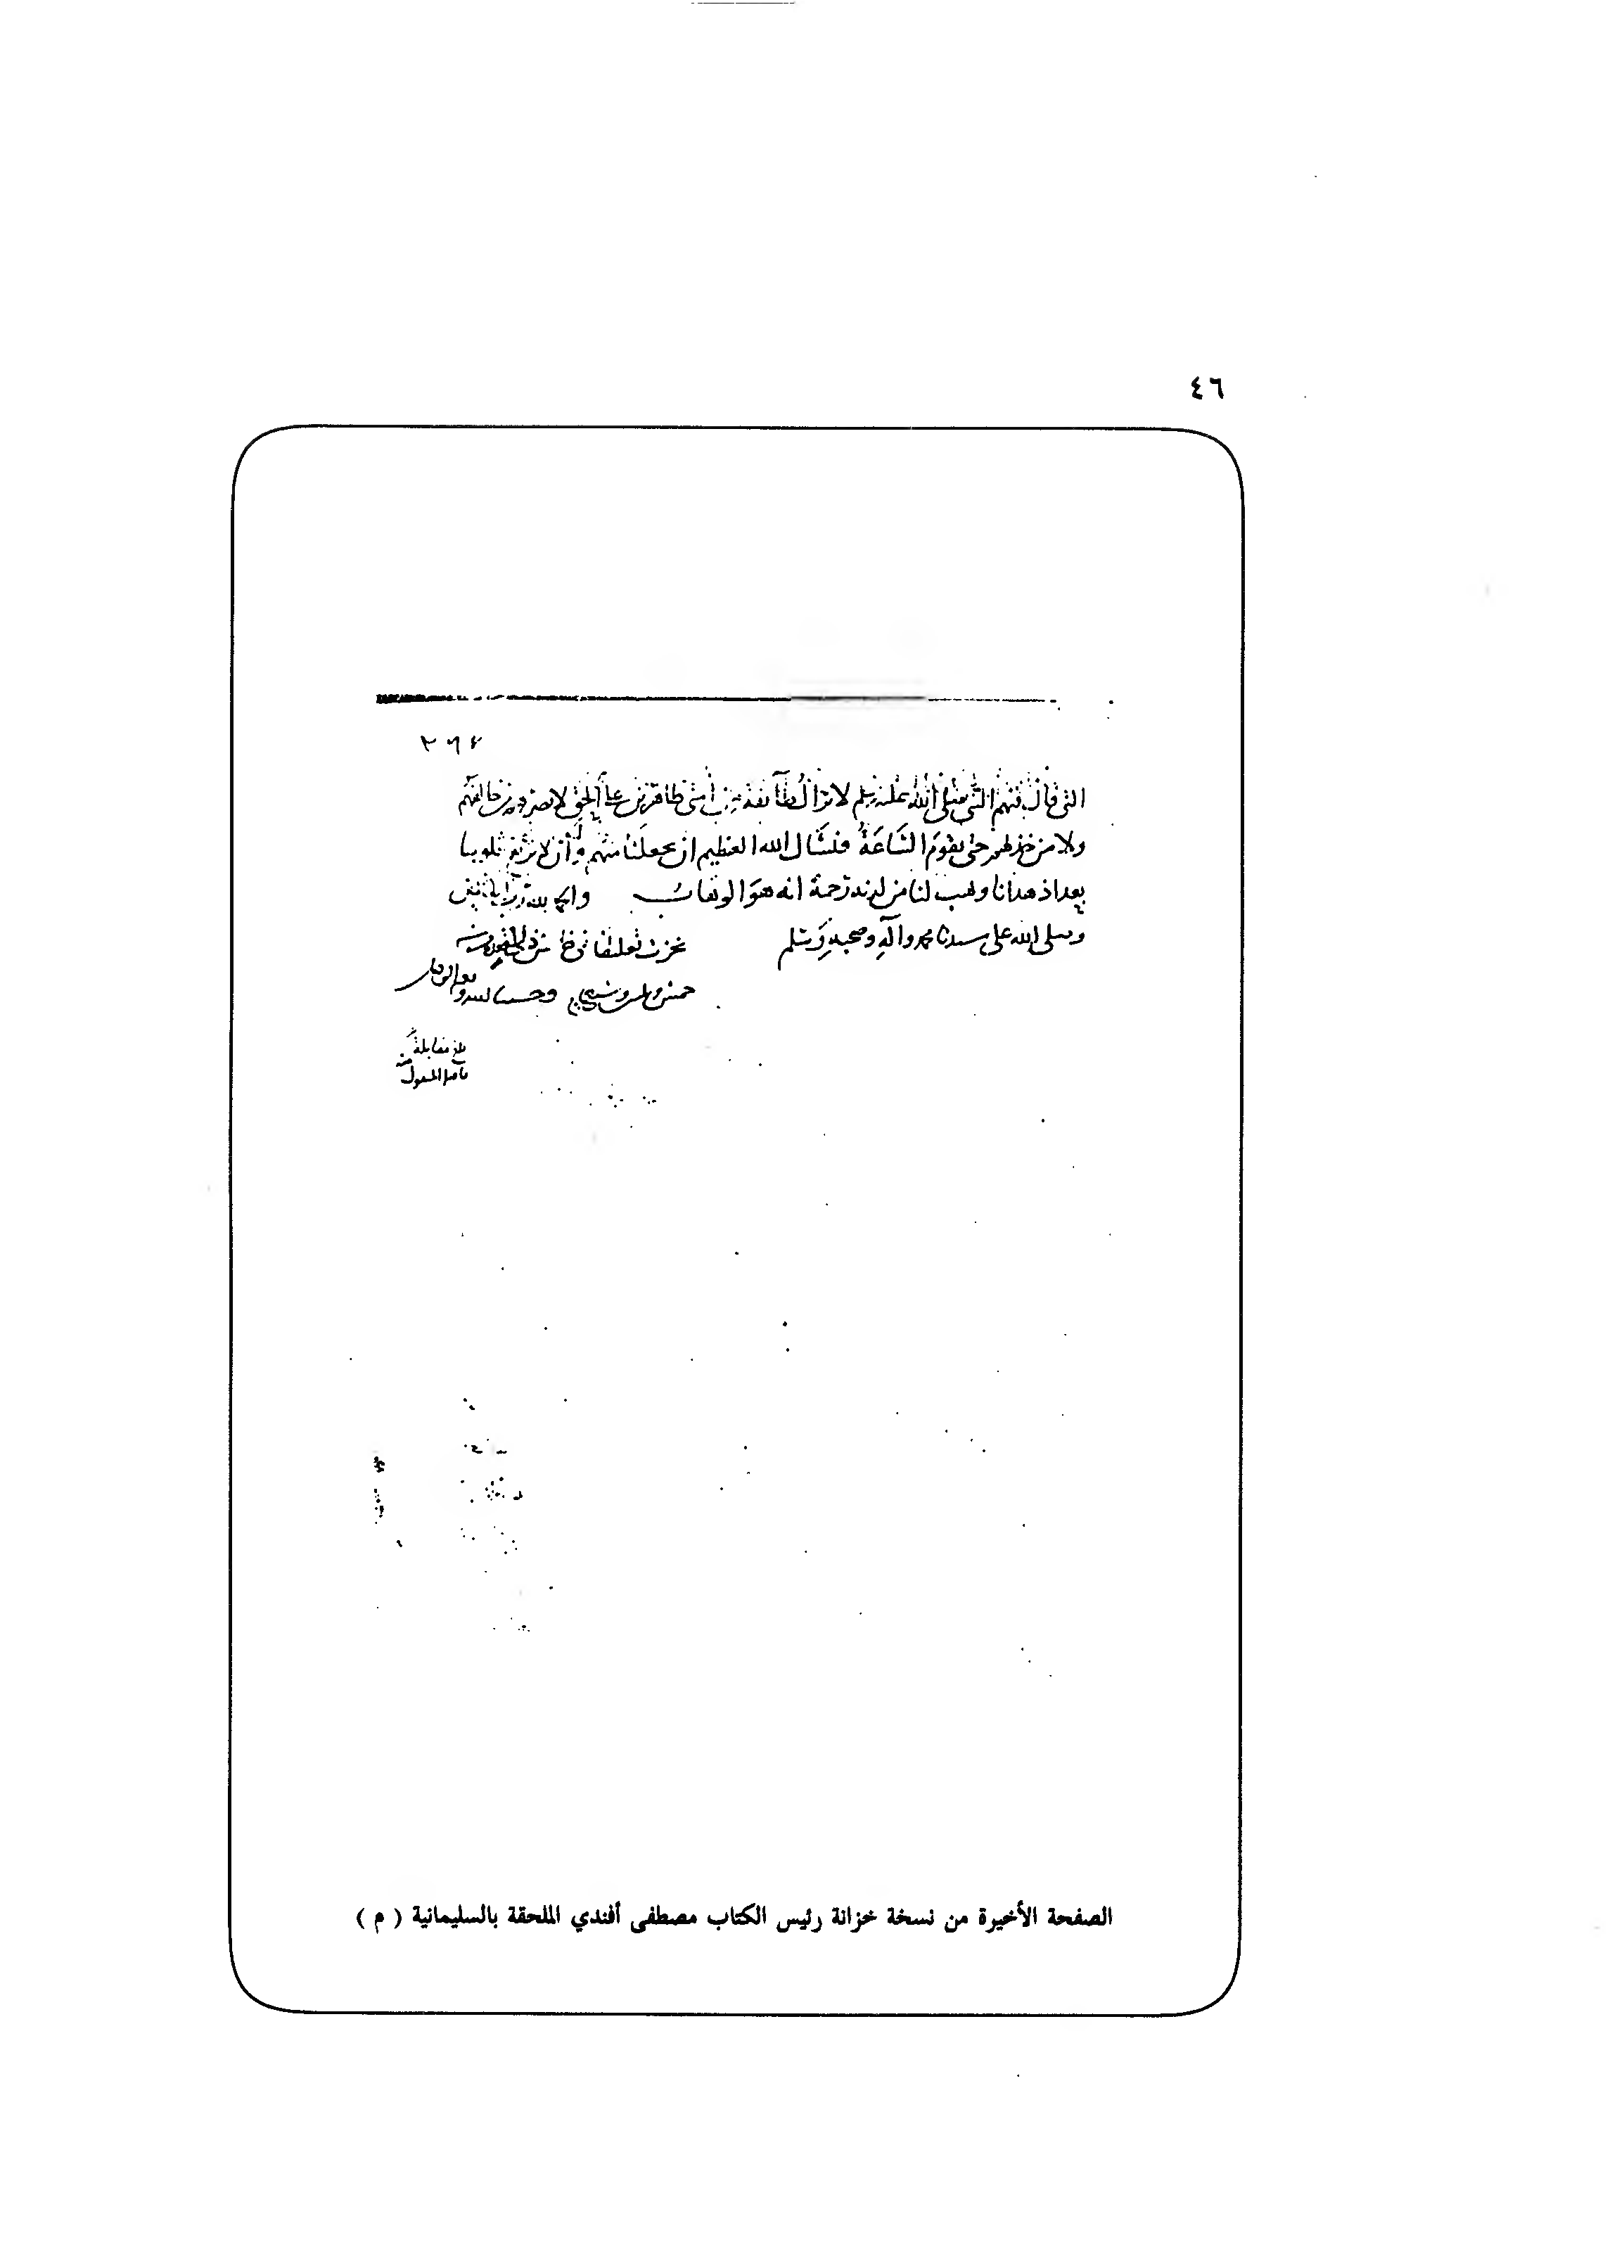 ٤٦
٣٦٤
التي قال فيهم النبي صلى الله عليه وسلم لا تزال طائفة من أمتي ظاهرين على الحق لا يضرهم من خالفهم
ولا من خذلهم حتى تقوم الساعة فنسأل الله العظيم ان يجعلنا منهم وأن لا يزيغ قلوبنا
بعد اذ هدانا ويهب لنا من لدنه رحمة انه هو الوهاب والحمد لله رب العالمين
وصلى الله على سيدنا محمد وآله وصحبه وسلم نجزت تعليقا في
وحسبنا الله ونعم الوكيل
بلغ مقابلة
الصفحة الأخيرة من نسخة خزانة رئيس الكتاب مصطفى أفندي الملحقة بالسليمانية ( م )